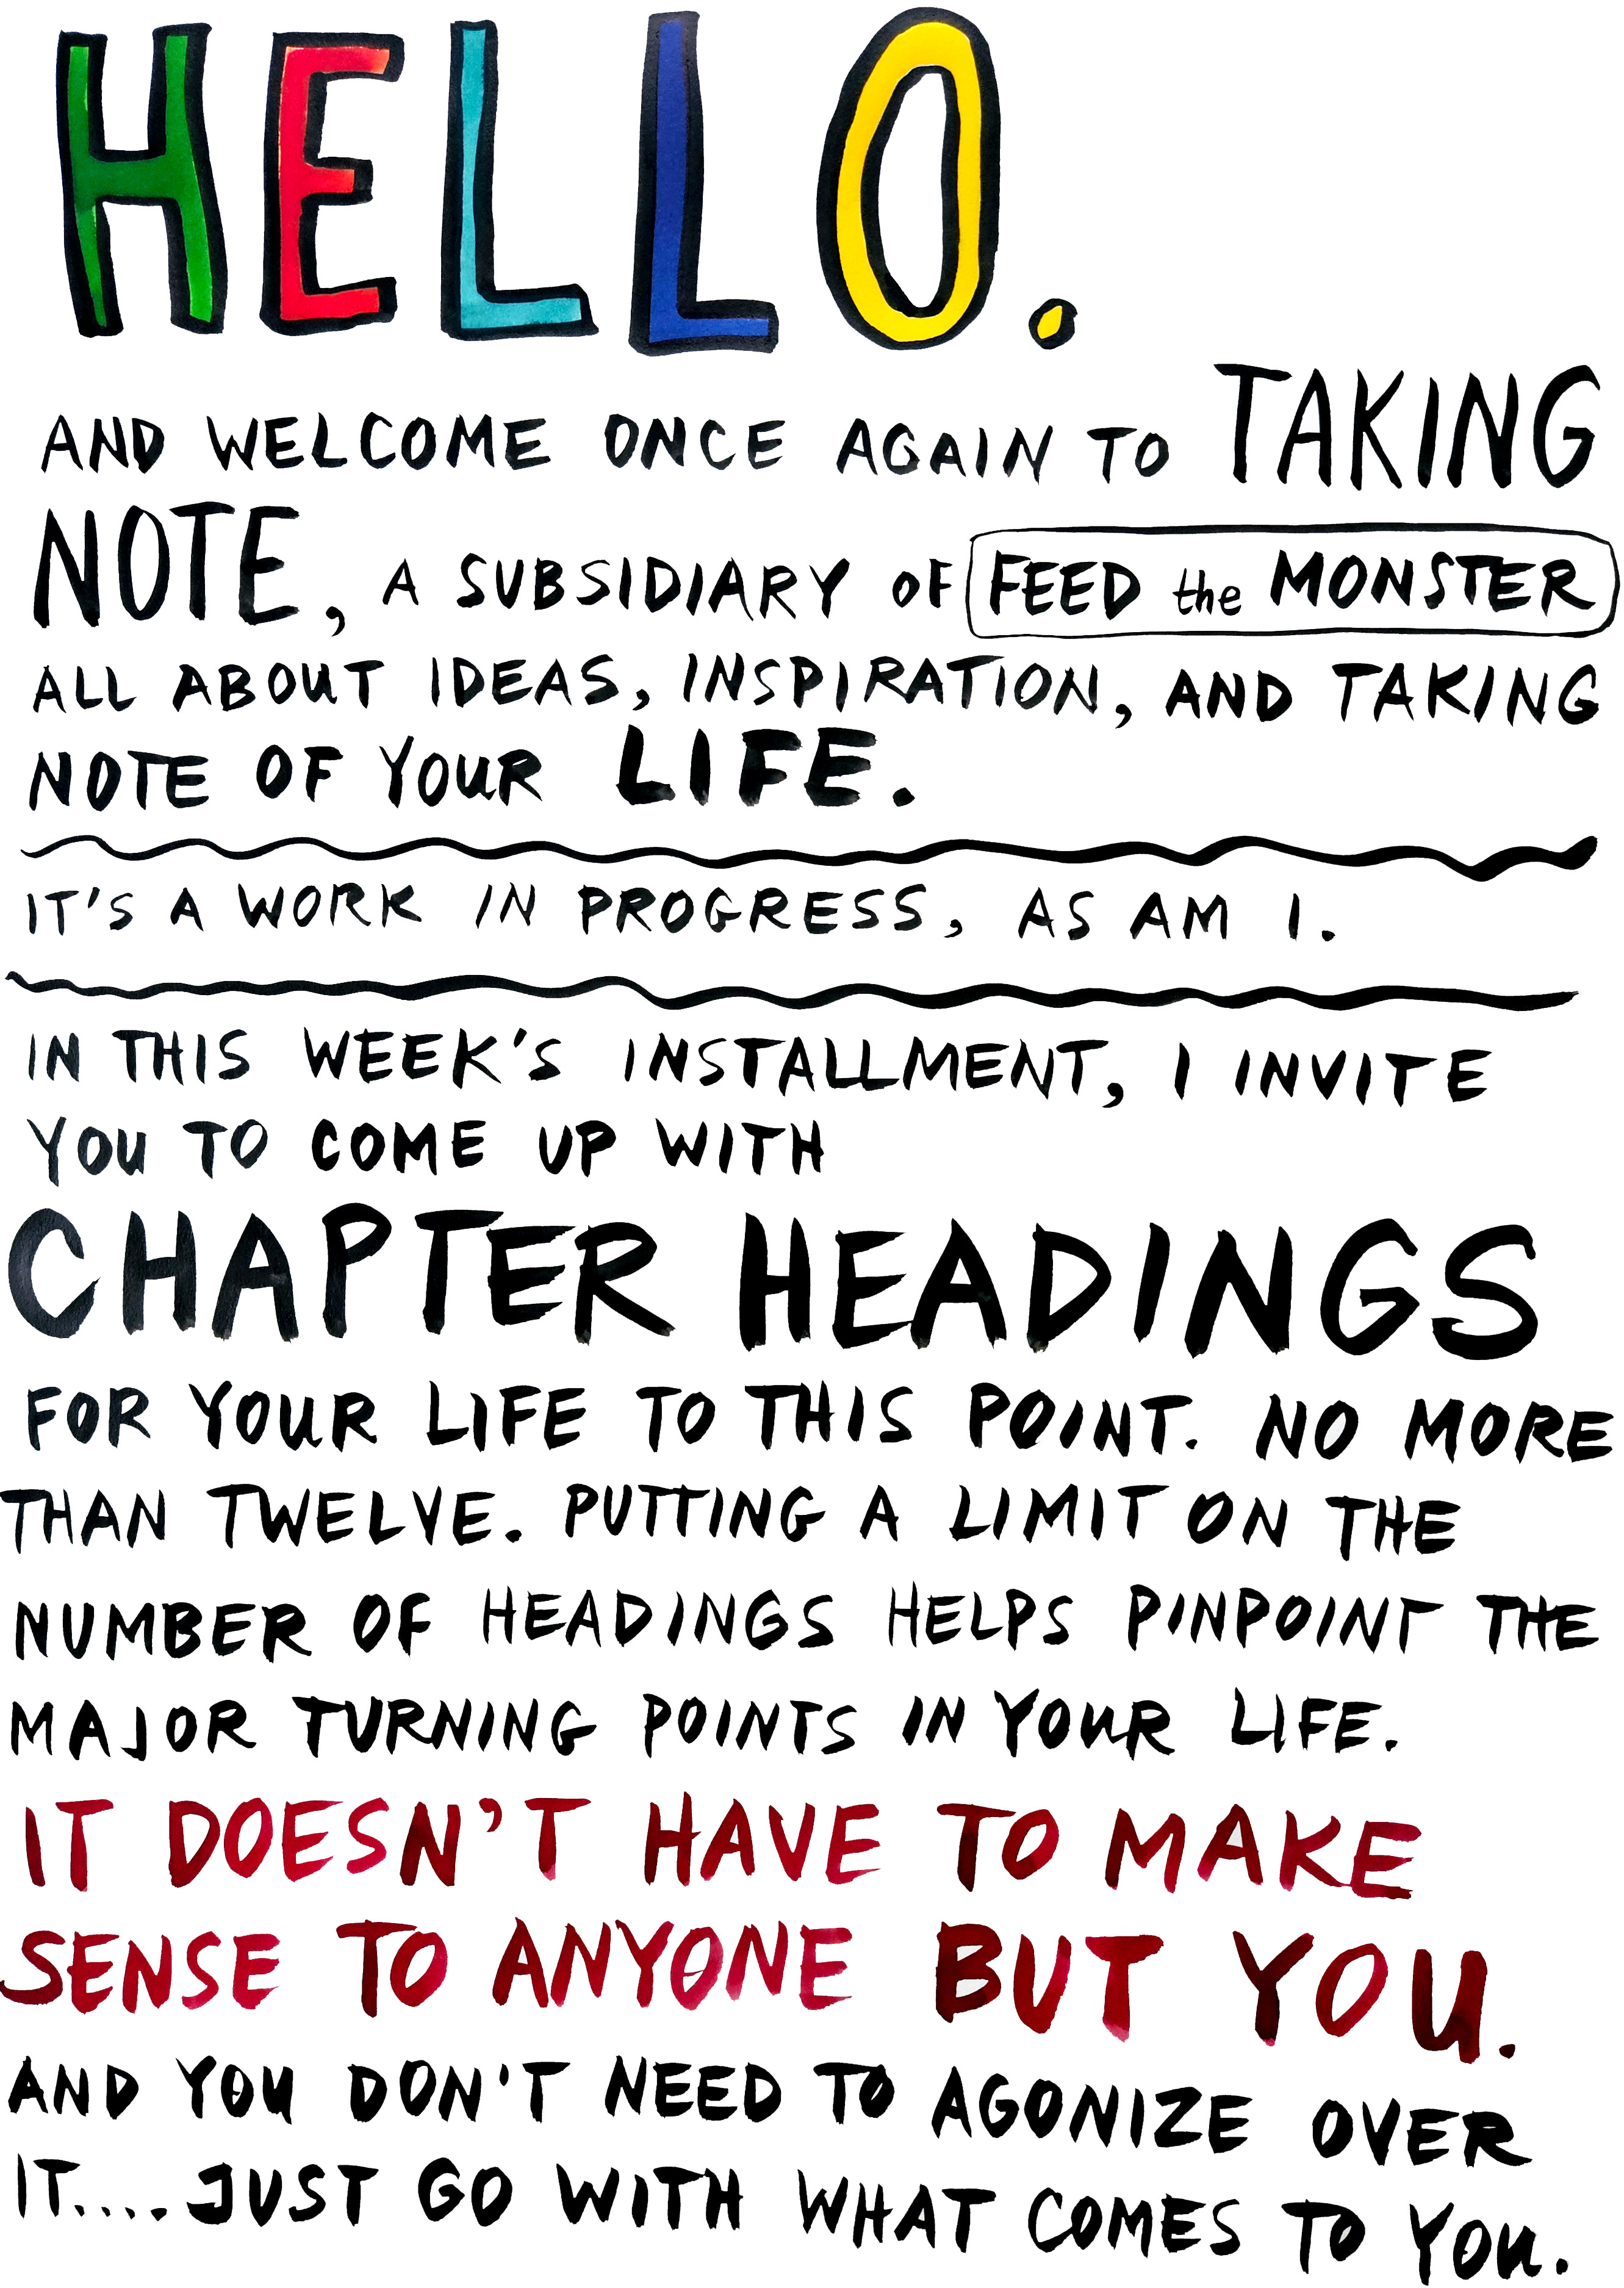 HELLO.
AND WELCOME ONCE AGAIN TO TAKING
NOTE, A SUBSIDIARY OF FEED the MONSTER
ALL ABOUT IDEAS, INSPIRATION, AND TAKING
NOTE OF YOUR LIFE.
IT'S A WORK IN PROGRESS, AS AM I.
IN THIS WEEK'S INSTALLMENT, I INVITE
YOU TO COME UP WITH
CHAPTER HEADINGS
FOR YOUR LIFE TO THIS POINT. NO MORE
THAN TWELVE. PUTTING A LIMIT ON THE
NUMBER OF HEADINGS HELPS PINPOINT THE
MAJOR TURNING POINTS IN YOUR LIFE.
IT DOESN'T HAVE TO MAKE
SENSE TO ANYONE BUT YOU.
AND YOU DON'T NEED TO AGONIZE OVER
IT.... JUST GO WITH WHAT COMES TO YOU.